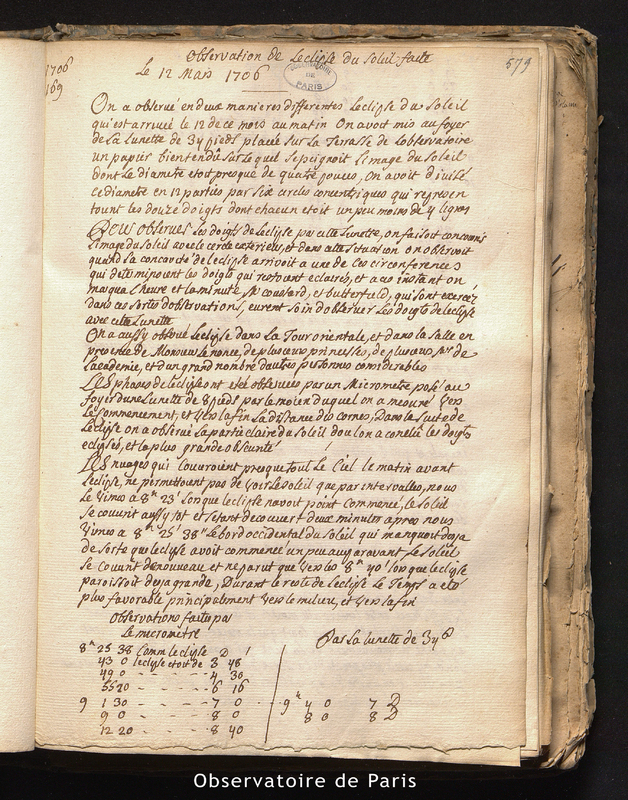 1706
169
579
Observation de Leclipse du Soleil faite
Le 12 Mars 1706
OBSERVATOIRE DE PARIS
On a observé en deux manieres differentes Leclipse du Soleil
qui est arrivée le 12 de ce mois au matin On avoit mis au foyer
de La Lunette de 34 pieds placée Sur La Terrasse de Lobservatoire
un papier bien tendu Sur lequel Se peignoit Limage du Soleil
dont Le diametre etoit presque de quatre pouces, On avoit divisé
ce diametre en 12 parties par Six cercles concentriques qui represen
toient les douze doigts dont chacun etoit un peu moins de 4 lignes
Pour observer les doigts de Leclipse par cette Lunette, on faisoit concourir
Limage du Soleil avec le cercle exterieur, et dans cette Situation on observoit
quand La concavité de Leclipse arrivoit a une de ces circonferences
qui determinoient les doigts qui restoient eclairés, et a cet instant on
marqua Lheure et La minute, Mr Coussard, et butterfield, qui Sont exercés
dans ces Sortes dobservations, eurent Soin dobserver Les doigts de Leclipse
avec cette Lunette
On a aussy observé Leclipse dans La Tour orientale, et dans la Salle en
presence de Monsieur le nonce, de plusieurs princesses, de plusieurs Mrs de
Lacademie, et dun grand nombre dautres personnes considerables
Les phases de Leclipse ont eté observées par un Micrometre posé au
foyer dune Lunette de 8 pieds par le moien duquel on a mesuré vers
Le commencement, et vers La fin La distance des cornes, Dans La Suite de
Leclipse on a observé La partie claire du Soleil dou lon a conclu les doigts
eclipsés, et La plus grande obscurité
Les nuages qui Couvroient presque tout Le Ciel le matin avant
Leclipse, ne permettoient pas de voir Le Soleil que par intervalles, nous
Le vimes a 8h 23' Lorsque leclipse navoit point commencé, le Soleil
Se couvrit aussy tot et Setant decouvert deux minutes apres nous
vimes a 8h 25' 38'' Le bord occidental du Soleil qui manquoit deja
de Sorte que leclipse avoit commencé un peu auparavant Le Soleil
Se couvrit de nouveau et ne parut que vers les 8h 40' lorsque leclipse
paroissoit deja grande, Durant le reste de Leclipse Le Temps a eté
plus favorable principalement vers le milieu, et vers la fin
Observations faites par
Le micrometre
Par La lunette de 34 p
8h 25 38 Comm leclipse D '
43 0 leclipse etoit de 3 48
49 0 - - - - - 4 30
55 20 - - - - 6 16
9 1 30 - - - - 7 0 - - - 9h 4 0 7 D
9 0 - - - - 8 0 8 0 8 D
12 20 - - - - 8 40
Observatoire de Paris